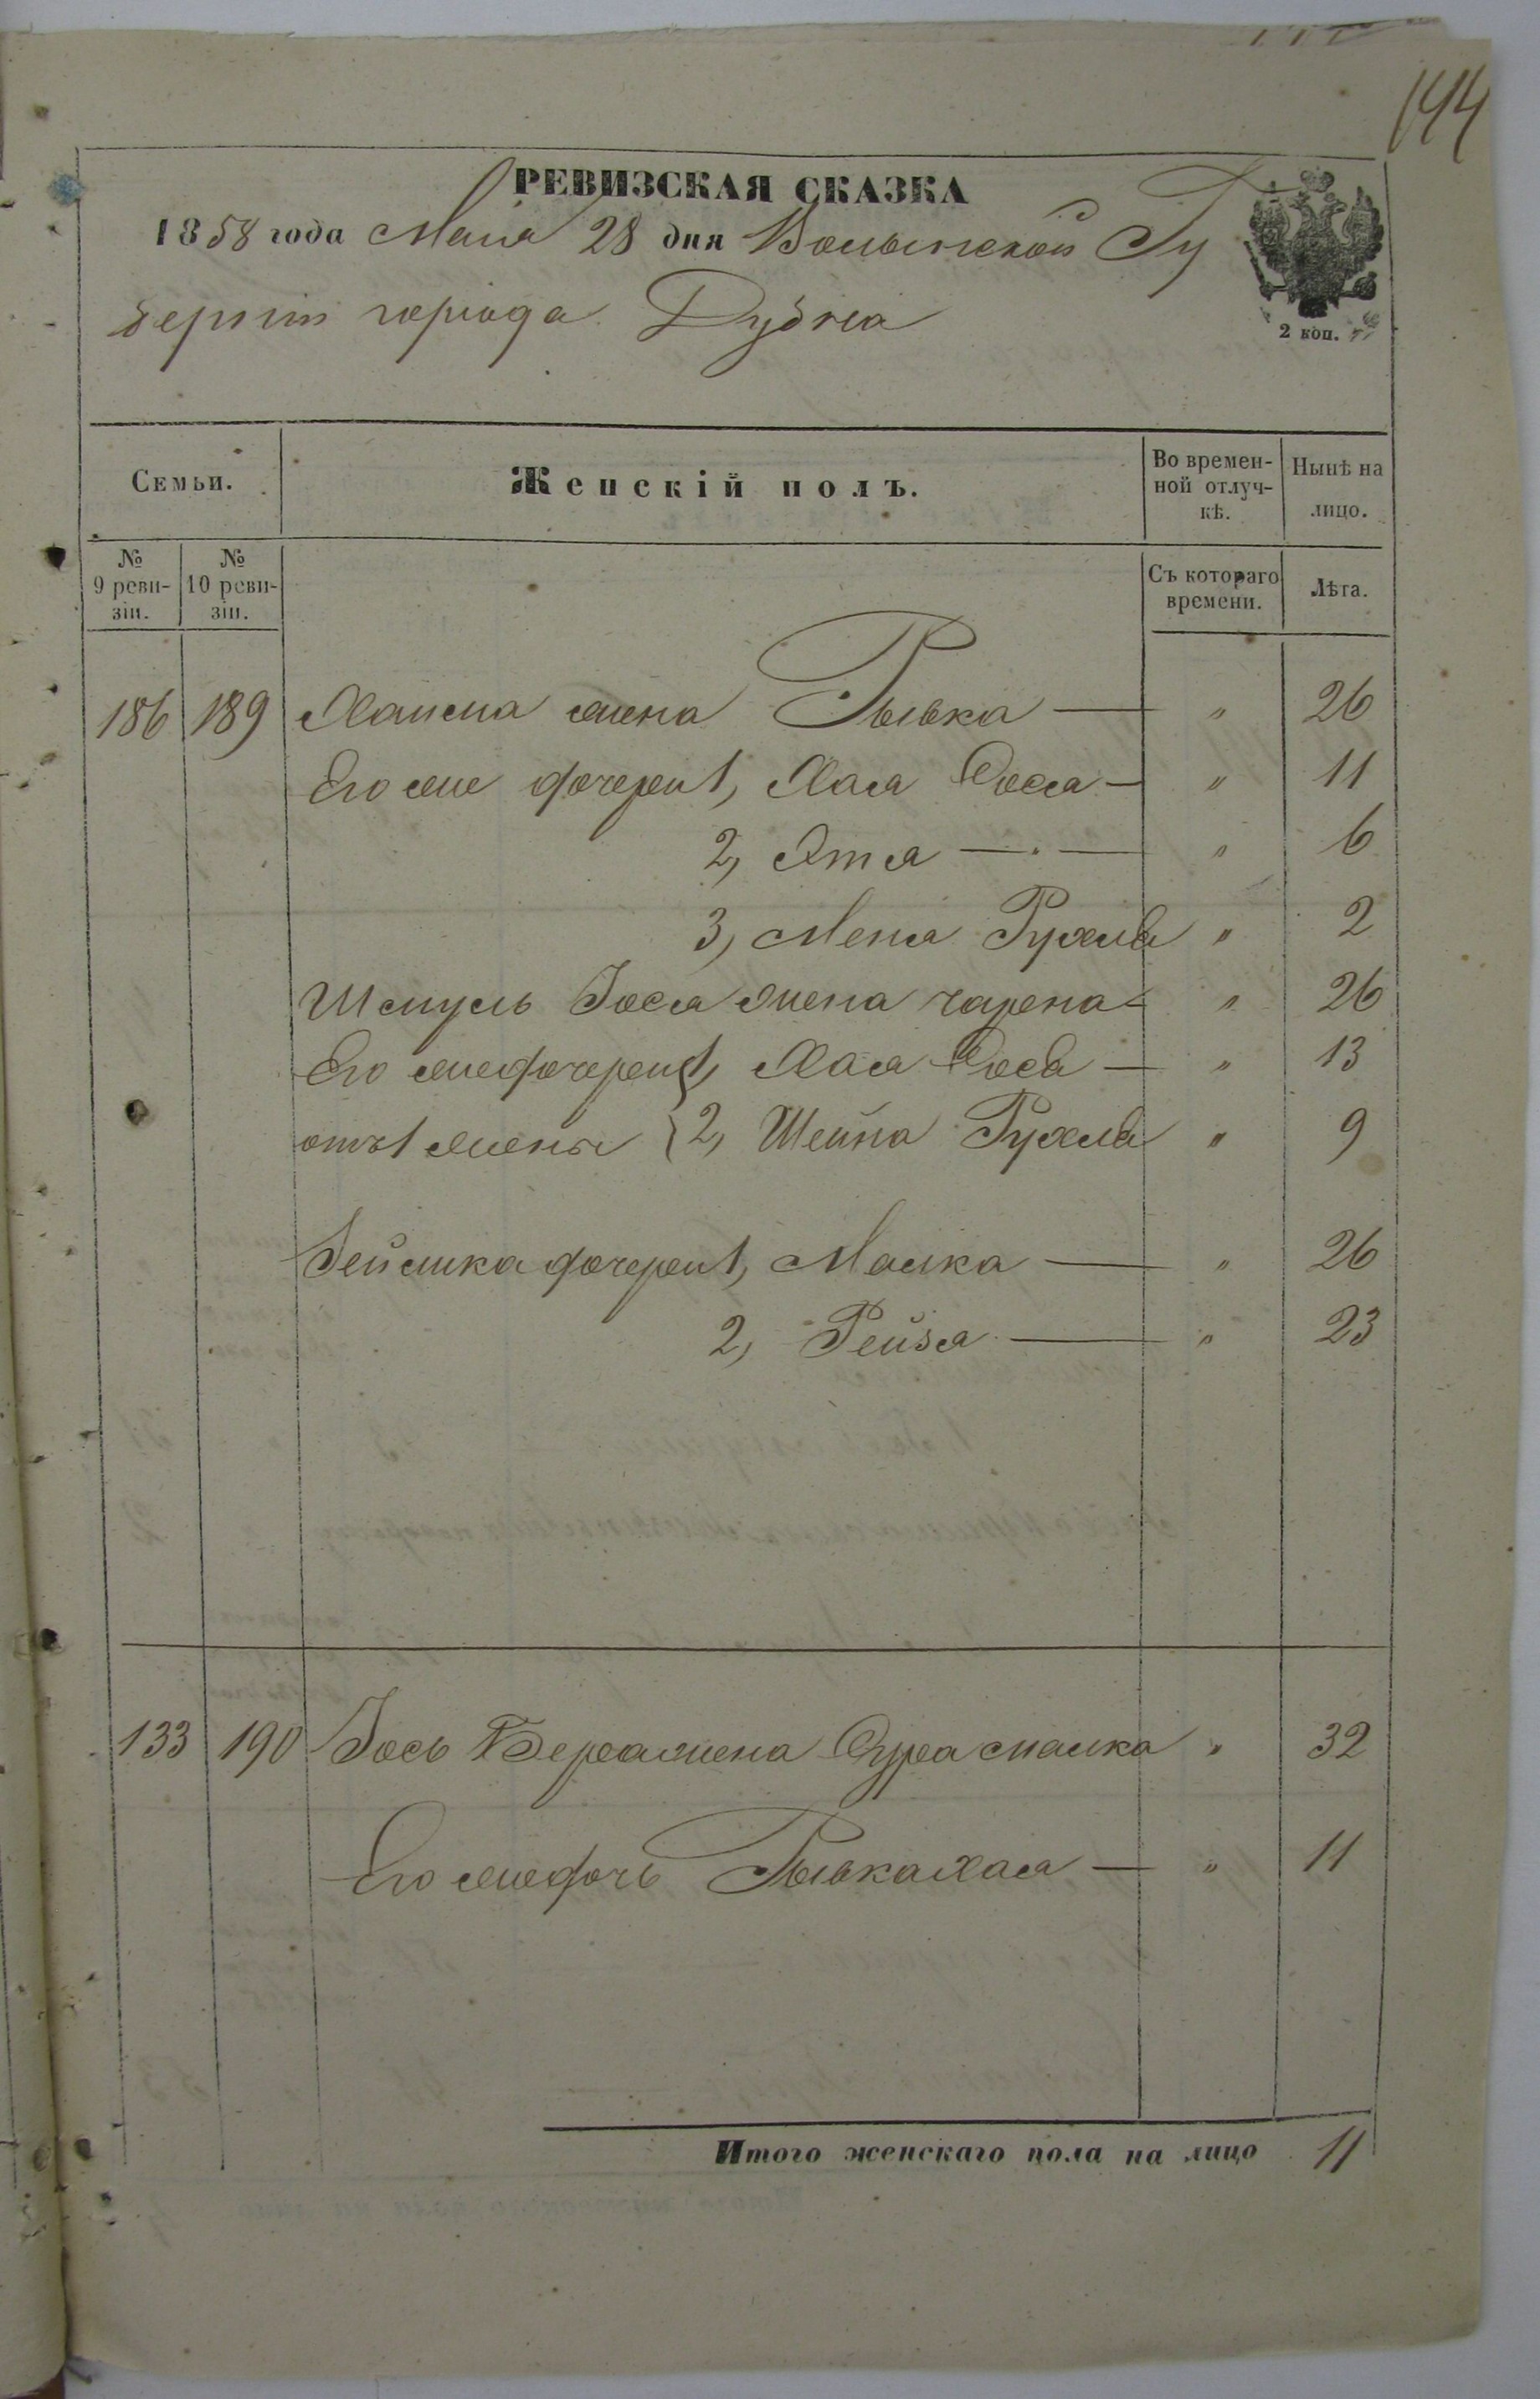 144
РЕВИЗСКАЯ СКАЗКА
1858 года Мая 28 дня Волынской Гу
берніи города Дубна
2 коп.
Семьи. Женскій полъ. Во времен-ной отлуч-кѣ. Нынѣ на лицо.
№ 9 реви-зіи. № 10 реви-зіи. Съ котораго времени. Лѣта.
186 189 Хаима жена Рывка — " 26
Его же дочери 1, Хая Сося — " 11
2, Этя — " 6
3, Меня Рухля " 2
Шмуль Іося жена Чарена — " 26
Его же дочери 1, Хая Сося — " 13
отъ 1 жены 2, Шейна Рухля " 9
Зейлика дочери 1, Малка — " 26
2, Рейзя — " 23
133 190 Іось Бера жена Сура Малка " 32
Его же дочь Рывка Хая — " 11
Итого женскаго пола на лицо 11